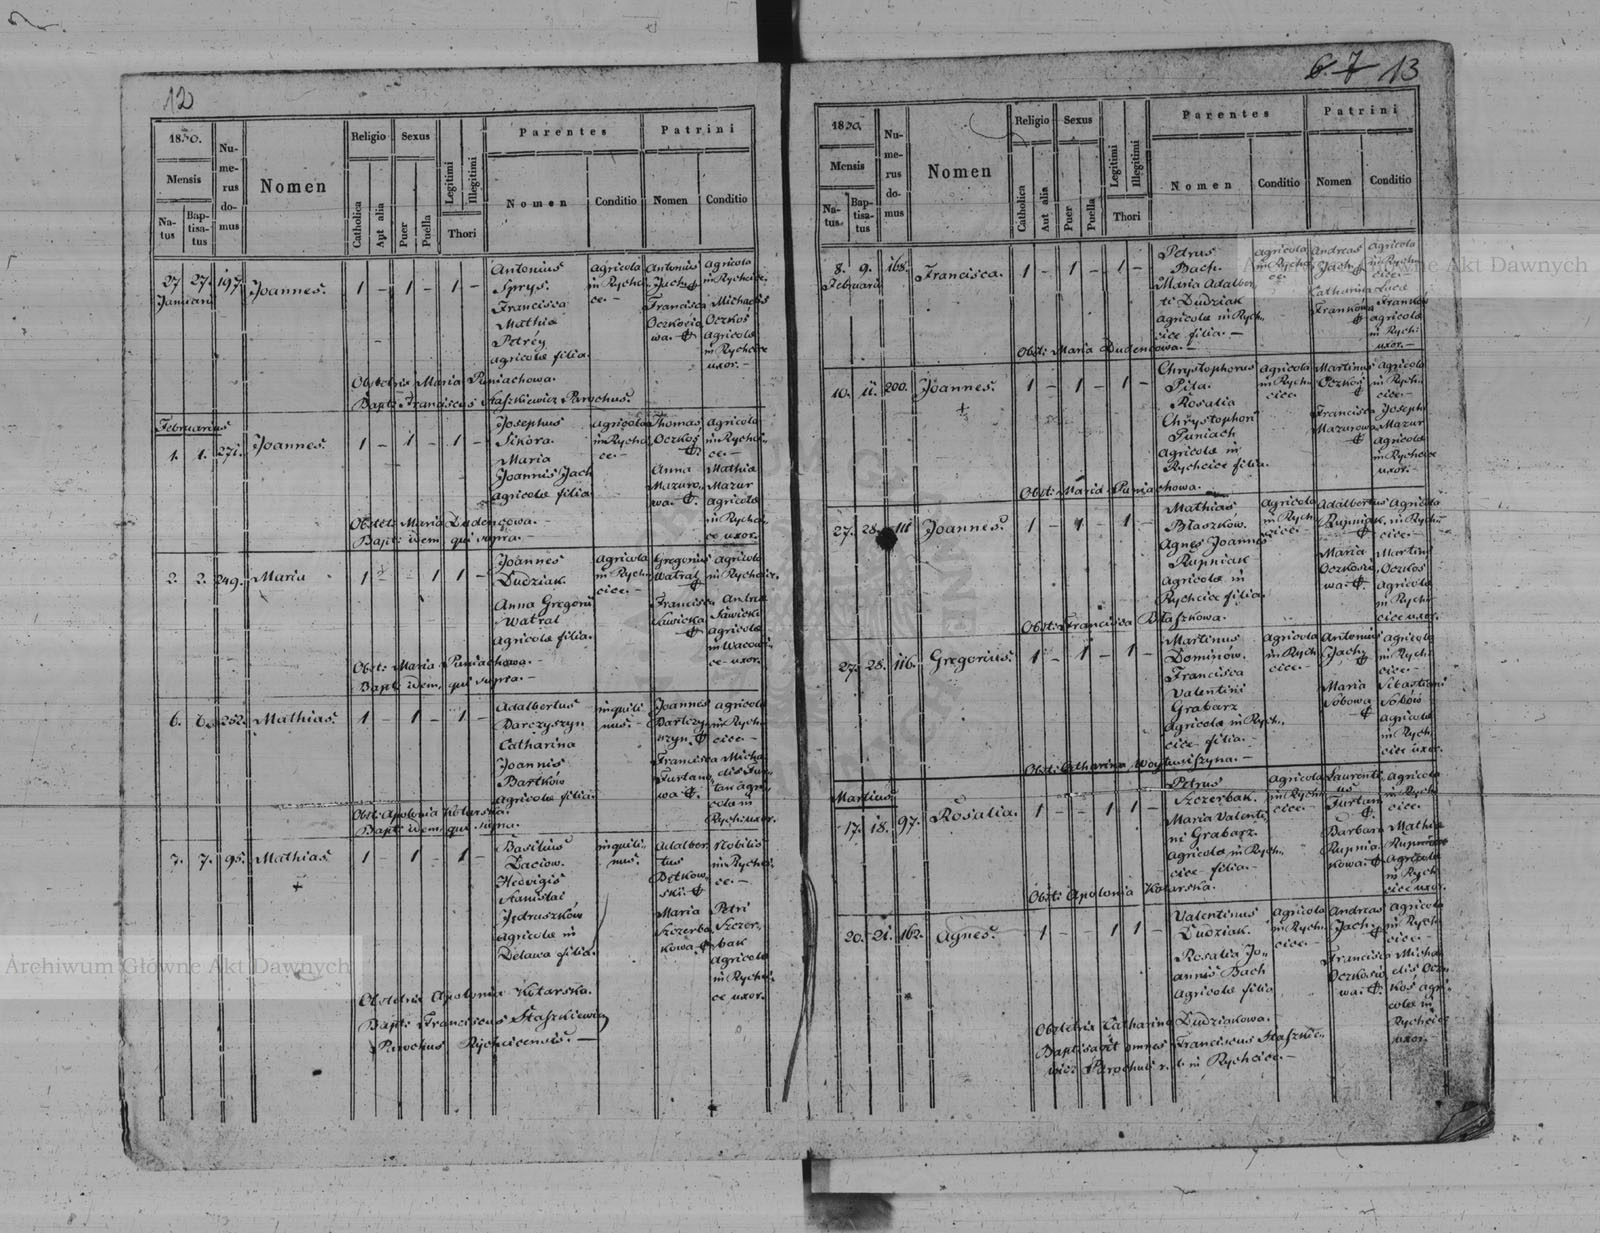 12
1830.
Mensis
Natus
Baptisatus
Numerus domus
Nomen
Religio
Catholica
Aut alia
Sexus
Puer
Puella
Legitimi
Illegitimi
Thori
Parentes
Nomen
Conditio
Patrini
Nomen
Conditio
27 27. 197. Joannes. 1 - 1 - 1 -
Januari
Antonius
Sprys.
Francisca
Mathiæ
Petréy
agricolæ filia.
agricola
in Rychci
ce.-
Antonius
Jach
Francisca
Oczkowa
wa.
agricola
in Rychcice.
Michaelis
Oczkoś
agricolæ
in Rychcice
uxor.-
Obstetrix Maria Puniachowa.
Bapt: Franciscus Staszkiewicz Parochus.
Februarius
1. 1. 271. Joannes. 1 - 1 - 1 -
Josephus
Sikora.
Maria
Joannis Jach
agricolæ filia.
agricola
in Rychci
ce.-
Thomas
Oczkoś
Anna
Mazuro,,
wa.
agricola
in Rychci
ce.-
Mathiæ
Mazur
agricolæ
in Rychci,,
ce uxor.
Obstet: Maria Dudencowa.-
Bapt: idem, qui supra.-
2. 2. 249. Maria 1 - - 1 1 -
Joannes
Dudziak.
Anna Gregorii
Watral
agricolæ filia.
agricola
in Rych
cice.-
Gregorius
Watral
Francisca
Sawicka
agricola
in Rychcice.
Andreæ
Sawicki
agricolæ
ce uxor.
Obst: Maria Puniachowa.-
Bapt: idem, qui supra.-
6. 6. 252. Mathias. 1 - 1 - 1 -
Adalbertus
Barczyszyn
Catharina
Joannis
Bartków
agricolæ filia.
inquili
nus.-
Joannes
Barczy
szyn.
Francisca
Furtano
wa
agricola
in Rych
cice.-
Micha
elis Fur
tan agri
colæ in
Rych: uxor.
Obst: Apolonia Kotarska.
Bapt: idem, qui supra.
7. 7. 95. Mathias. 1 - 1 - 1 -
Basilius
Daciow.
Hedvigis
Stanislai
Jędruszków
agricolæ in
Delawa filia.
inquili
nus.
Adalber
tus
Bętkow
ski.
Maria
Szczerba
kowa.
Nobilis
in Rychci
ce.-
Petri
Szczer,,
bak
agricolæ
in Rychci
ce uxor.
Obstetrix Apolonia Kotarska.
Bapt: Franciscus Staszkiewicz
Parochus Rychcicensis.-
6. 7 13
1830.
Mensis
Natus
Baptisatus
Numerus domus
Nomen
Religio
Catholica
Aut alia
Sexus
Puer
Puella
Legitimi
Illegitimi
Thori
Parentes
Nomen
Conditio
Patrini
Nomen
Conditio
8. 9. 168. Francisca. 1 - 1 - 1 -
Februarii
Petrus
Bach.
Maria Adalber,,
ti Dudziak
agricolæ in Rych,,
cice filia.-
agricola
in Rychci
ce.
Andreas
Jach
Catharina
Franków
agricola
in Rychci
cice.
Lucæ
Franków
agricolæ
in Rych:
uxor.-
Obst: Maria Dudencowa.-
10. 11. 200. Joannes. 1 - 1 - 1 -
Chrystophorus
Pita.
Rosalia
Chrystophori
Puniach
agricolæ in
Rychcice filia.
agricola
in Rych
cice.
Martinus
Oczkoś
Francisca
Mazurowa
agricola
in Rych
cice.-
Josephi
Mazur
agricolæ
in Rychcice
uxor.-
Obst: Maria Puniachowa.
27. 28. 111 Joannes. 1 - 1 - 1 -
Mathias
Błaszków.
Agnes Joannis
Rupniak
agricolæ in
Rychcice filia.
agricola
in Rych
cice.-
Adalbertus
Rupniak.
Maria
Oczkosio
wa.
agricola
in Rych
cice.-
Martini
Oczkoś
agricolæ
in Rych
cice uxor.
Obst: Francisca Błaszkowa.
27. 28. 116. Gregorius. 1 - 1 - 1 -
Martinus
Dominów.
Francisca
Valentini
Grabarz
agricolæ in Rych,,
cice filia.-
agricola
in Rych
cice.-
Antonius
Jach
Maria
Sobowa
agricola
in Rych:
cice.-
Sebastiani
Sobów
agricolæ
in Rych
cice uxor.
Obst: Catharina Woytwiszyna.-
Martius
17. 18. 97. Rosalia. 1 - - 1 1 -
Petrus
Szczerbak.
Maria Valenti,,
ni Grabarz.
agricolæ in Rych,,
cice filia.-
agricola
in Rych
cice.-
Laurenti
us
Furtan
Barbara
Rupnia
kowa.
agricola
in Rych
cice.
Mathiæ
Rupniak
agricolæ
in Rych
cice uxor.
Obst: Apolonia Kotarska.
20. 21. 162. Agnes. 1 - - 1 1 -
Valentinus
Dudziak.
Rosalia Jo,,
annis Bach
agricolæ filia
agricola
in Rych:
cice.-
Andreas
Jach
Francisca
Oczkosio
wa.
agricola
in Rych
cice.-
Micha
elis Ocz,,
koś agri,,
colæ in
Rychcice
uxor.-
Obstetrix Catharina Dudziakowa.
Baptisavit omnes Franciscus Staszkie,,
wicz Parochus r. l. in Rychcice.-
Archiwum Główne Akt Dawnych
Archiwum Główne Akt Dawnych